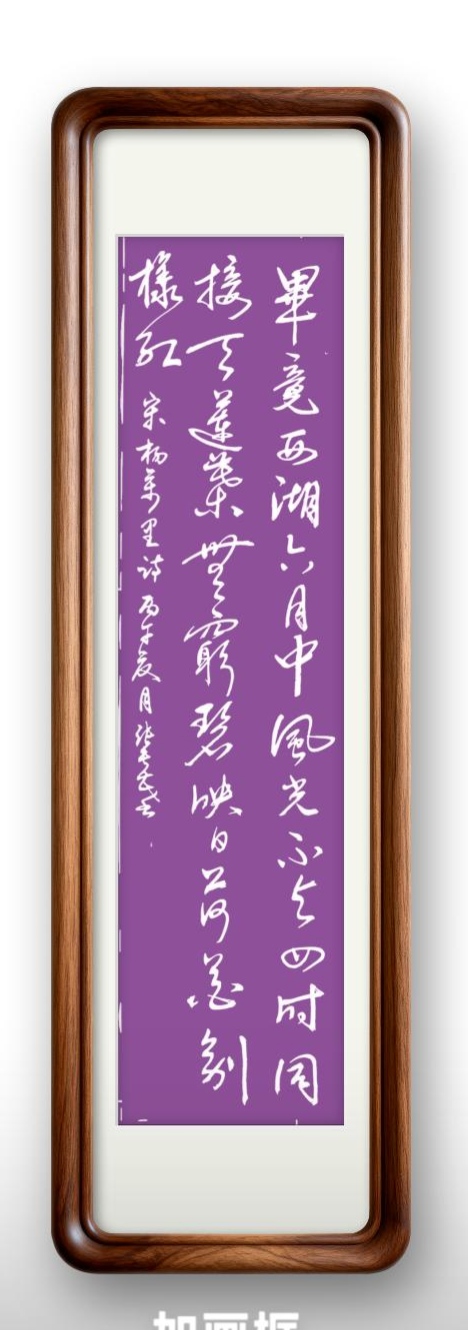 畢竟西湖六月中風光不与四时同
接天蓮葉無窮碧映日荷花別
樣紅 宋杨万里诗 丙午夏月
加画框